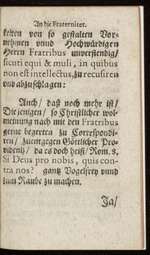 An die Fraterniter.
keiten von so gestalten Vor-
nehmen vnnd Hochwürdigen
Herren Fratribus vnverständig/
sicuti equi & muli, in quibus
non est intellectus, zu recusiren
vnd abzuschlagen:
Auch/ daß noch mehr ist/
Diejenigen/ so Christlicher wol-
meinung nach mit den Fratribus
gerne begereten zu Correspondi-
ren/ zuentgegen Göttlicher Pro-
videntz/ da es doch heist/ Rom. 8.
Si Deus pro nobis, quis con-
tra nos? gantz Vogelfrey vnnd
zum Raube zu machen.
Ja/